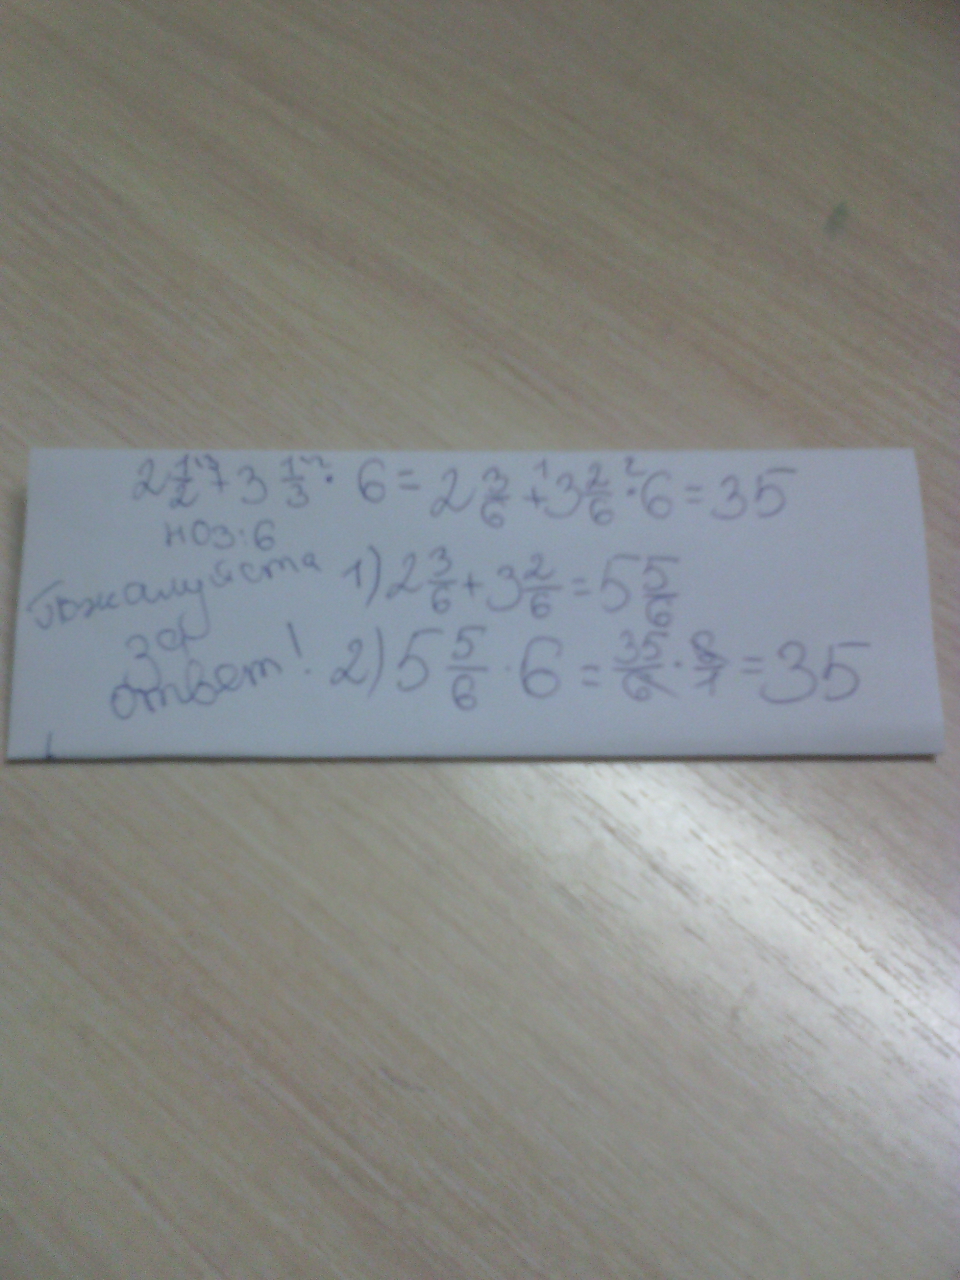 2 1/2 + 3 1/3 · 6 = 2 3/6 + 3 2/6 · 6 = 35
НОЗ: 6
Пожалуйста
за
ответ!
1) 2 3/6 + 3 2/6 = 5 5/6
2) 5 5/6 · 6 = 35/6 · 6/1 = 35